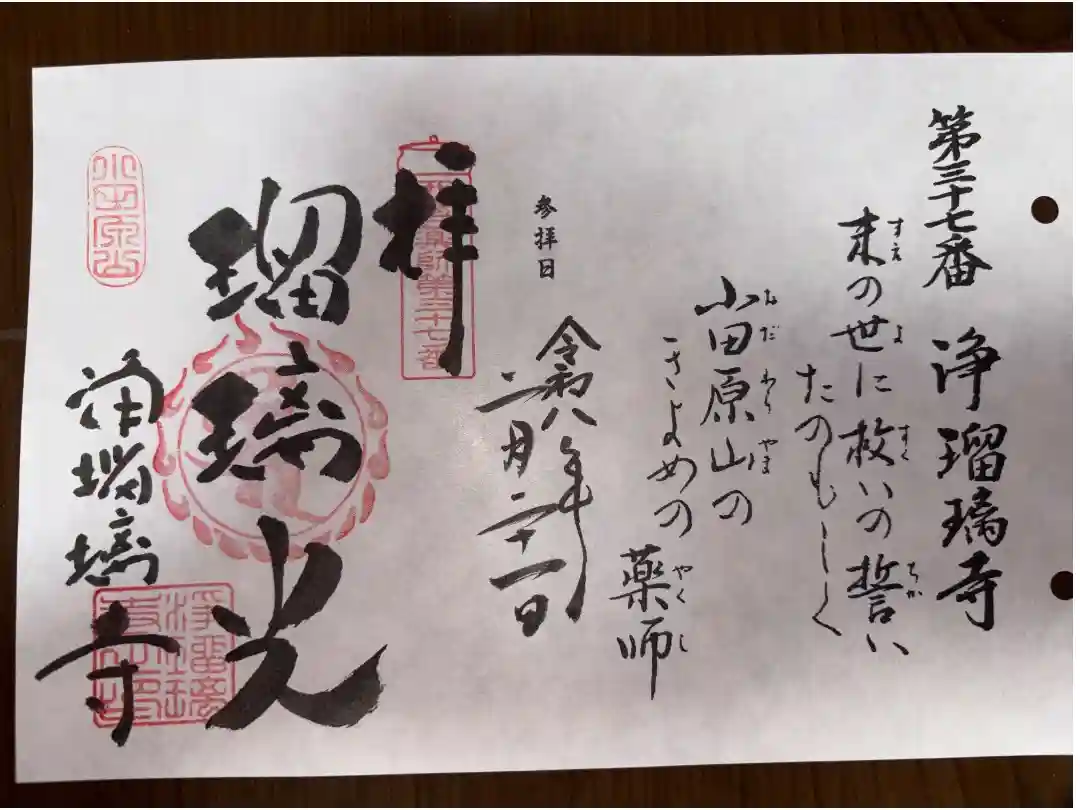 第三十七番 浄瑠璃寺
末の世に救いの誓い
すえ よ すく ちか
たのもしく
小田原山の
をだ わら やま
きよめの 薬師
やくし
参拝日
令和八年
二月二十一日
拝
西国薬師第三十七番
瑠璃光
小田原山
浄瑠璃寺
浄瑠璃